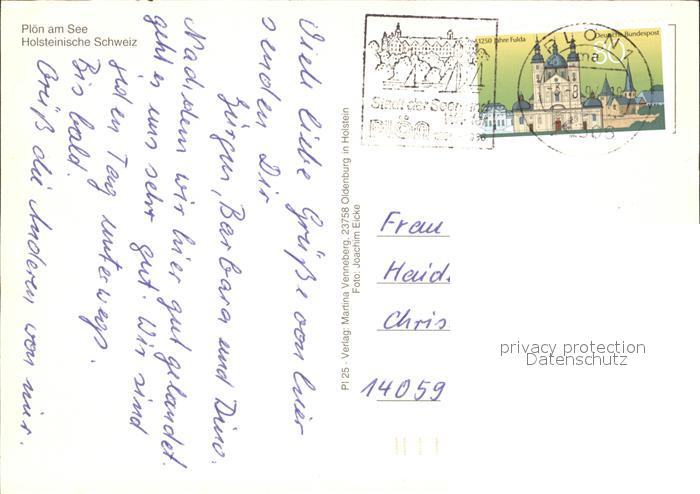 Plön am See
Holsteinische Schweiz
Viele liebe Grüße von hier
senden Dir
Jürgen, Barbara und Dino.
Nachdem wir hier gut gelandet
geht es uns sehr gut. Wir sind
jeden Tag unterwegs.
Bis bald.
Grüß die Anderen von mir.
Pl 25 - Verlag: Martina Venneberg, 23758 Oldenburg in Holstein
Foto: Joachim Eicke
1250 Jahre Fulda
Deutsche Bundespost
80
Stadt der Seen
PLÖN
Frau
Heid
Chris
14059
privacy protection
Datenschutz